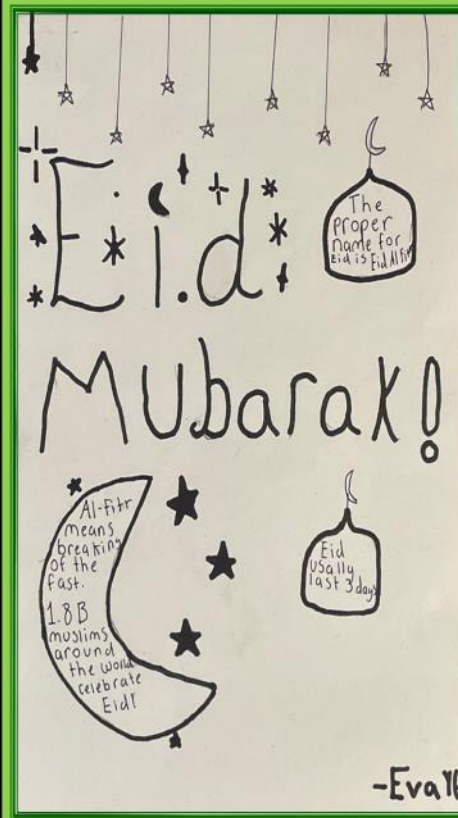 Eid
The
proper
name for
Eid is Eid Al fitr
Mubarak!
Al-Fitr
means
breaking
of the
fast.
1.8 B
muslims
around
the world
celebrate
Eid!
Eid
usally
last 3 days